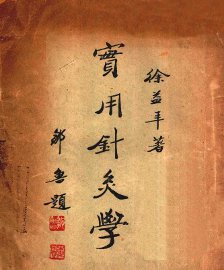 徐益年著
實用針灸學
題